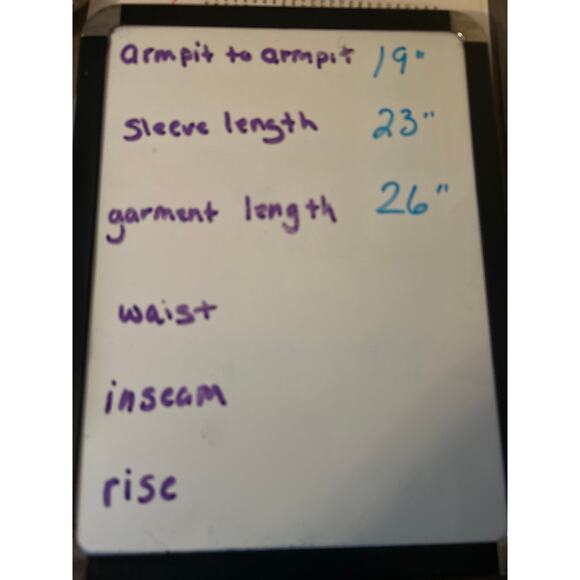 armpit to armpit 19"
sleeve length 23"
garment length 26"
waist
inseam
rise